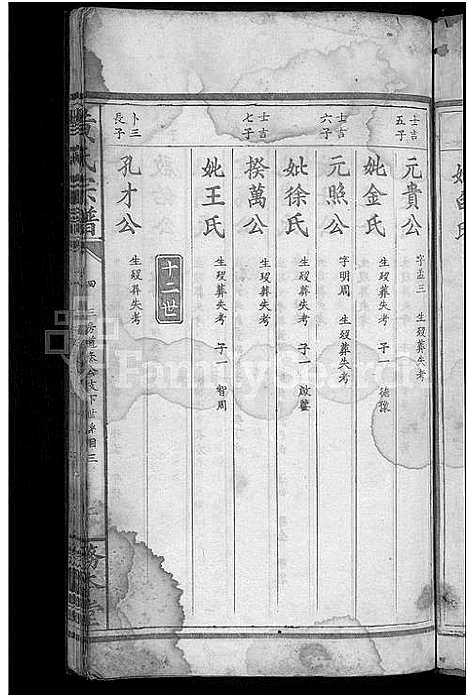 士吉五子
元貴公 字孟三 生歿葬失考
妣金氏 生歿葬失考 子一 德豫
士吉六子
元照公 字明周 生歿葬失考
妣徐氏 生歿葬失考 子一 啟鑒
士吉七子
揆萬公 生歿葬失考
妣王氏 生歿葬失考 子一 智周
十二世
卜三長子
孔才公 生歿葬失考
氏宗譜
四
務本堂
FamilySearch